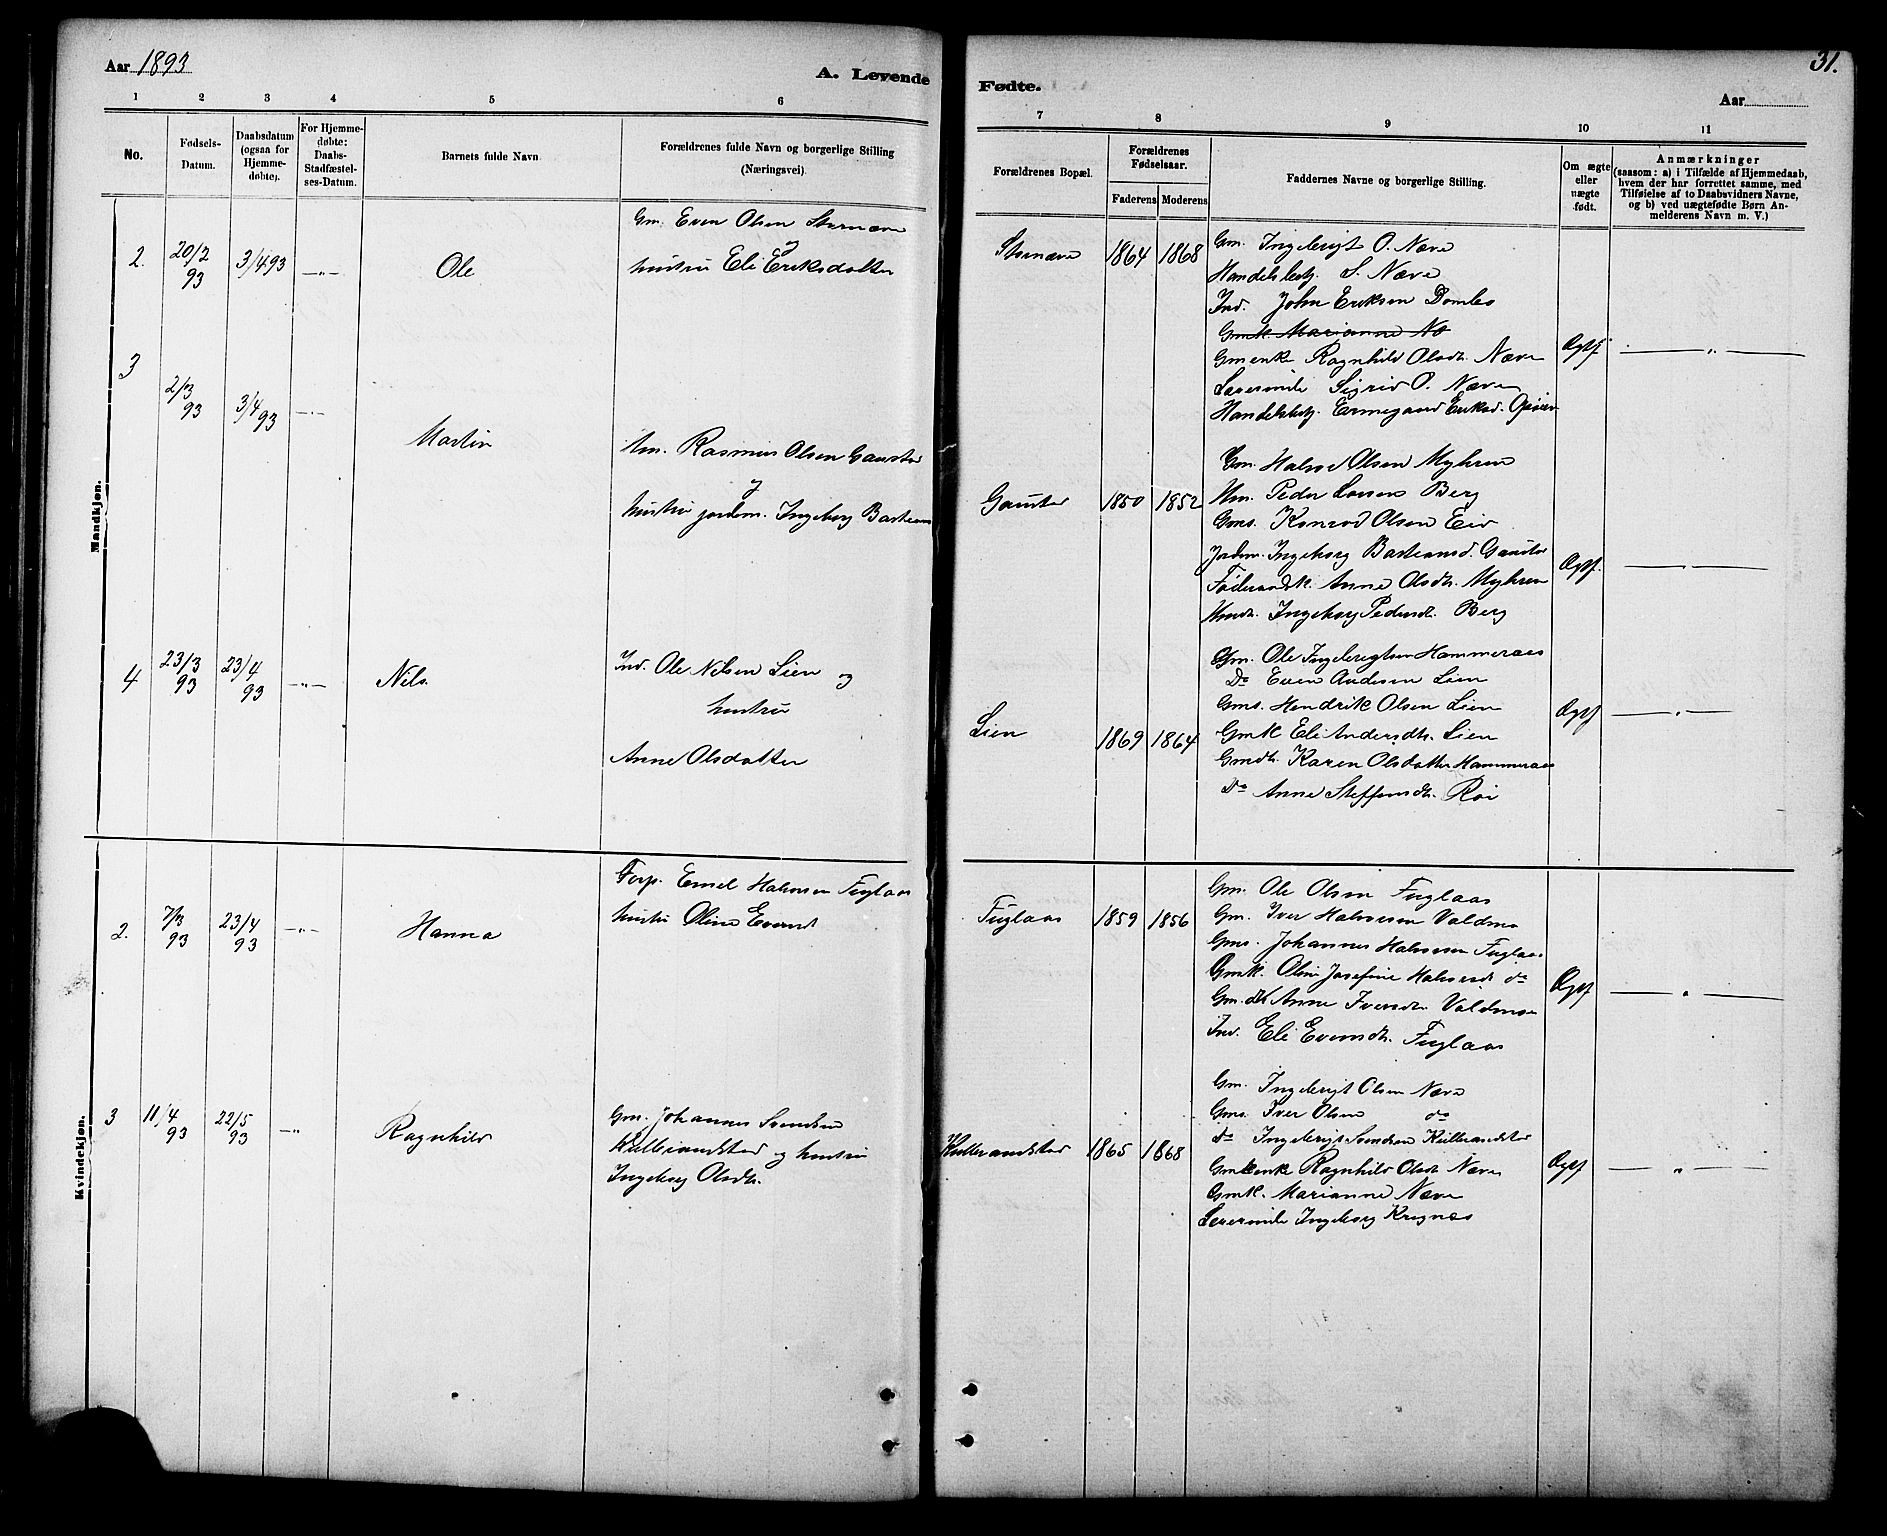 Aar 1893
A. Levende
Fødte.
31.
Aar
1 2 3 4 5 6
7 8 9 10 11
No.
Fødsels-
Datum.
Daabsdatum
(ogsaa for
Hjemme-
døbte).
For Hjemme-
døbte:
Daabs-
Stadfæstel-
ses-Datum.
Barnets fulde Navn
Forældrenes fulde Navn og borgerlige Stilling
(Næringsvei).
Forældrenes Bopæl.
Forældrenes
Fødselsaar.
Faderens Moderens
Faddernes Navne og borgerlige Stilling.
Om ægte
eller
uægte
født.
Anmærkninger
(saasom: a) i Tilfælde af Hjemmedaab,
hvem der har forrettet samme, med
Tilføielse af to Daabsvidners Navne,
og b) ved uægtefødte Børn An-
melderens Navn m. V.)
Mandkjøn.
2. 20/2 93 3/4 93 —„— Ole
Gm. Even Olsen
og
hustru Eli Eriksdatter
1864 1868
Gm. Ingebrigt O. Næve
S. Næve
Ind. John Eriksen Dombo
Gmk Marianne Næ
Gmenke Ragnhild Olsdtr. Næve
Sigrid O. Næve
Ægtf. —„—
3 2/3 93 3/4 93 —„— Martin
Rasmus Olsen Gaustad
og
hustru jordm. Ingeborg
Gaustad 1850 1852
Gm. Halvor Olsen Myhren
Hm. Peder Larsen Berg
Gms. Konrad Olsen Eid
Jordm. Ingeborg Bastiansd. Gaustad
Anne Olsdtr. Myhren
Ingeborg Pedersdtr. Berg
Ægtf. —„—
4 23/3 93 23/4 93 —„— Nils
Ind. Ole Nilsen Lien og
hustru
Anne Olsdatter
Lien 1869 1864
Gm. Ole Ingebrigtsen Hammeraas
Do Even Andersen Lien
Gms. Hendrik Olsen Lien
Gmk Eli Andersdtr. Lien
Gmdtr. Karen Olsdatter Hammeraas
Do Anne Steffensdtr. Roi
Ægtf —„—
Kvindekjøn.
2. 7/3 93 23/4 93 —„— Hanna
Forp. Emil Halvorsen Fuglaas
hustru Oline Evensdt
Fuglaas 1859 1856
Gm. Ole Olsen Fuglaas
Gm. Iver Halvorsen Valdmo
Gms. Johannes Halvorsen Fuglaas
Gmk. Oline Josefine Halvorsdt do
Gm.dtr Anne Iversdtr. Valdmo
Ind. Eli Evensdtr. Fuglaas
Ægtf —„—
3 11/4 93 22/5 93 —„— Ragnhild
Gm. Johannes Svendsen
Kulbrandstad og hustru
Ingeborg Olsdtr.
Kulbrandstad 1865 1868
Gm. Ingebrigt Olsen Næve
Gms. Iver Olsen do
do Ingebrigt Svendsen Kulbrandstad
Gmkenke Ragnhild Olsdt. Næve
Gmk. Marianne Næve
Ingeborg Krognes
Ægtf —„—